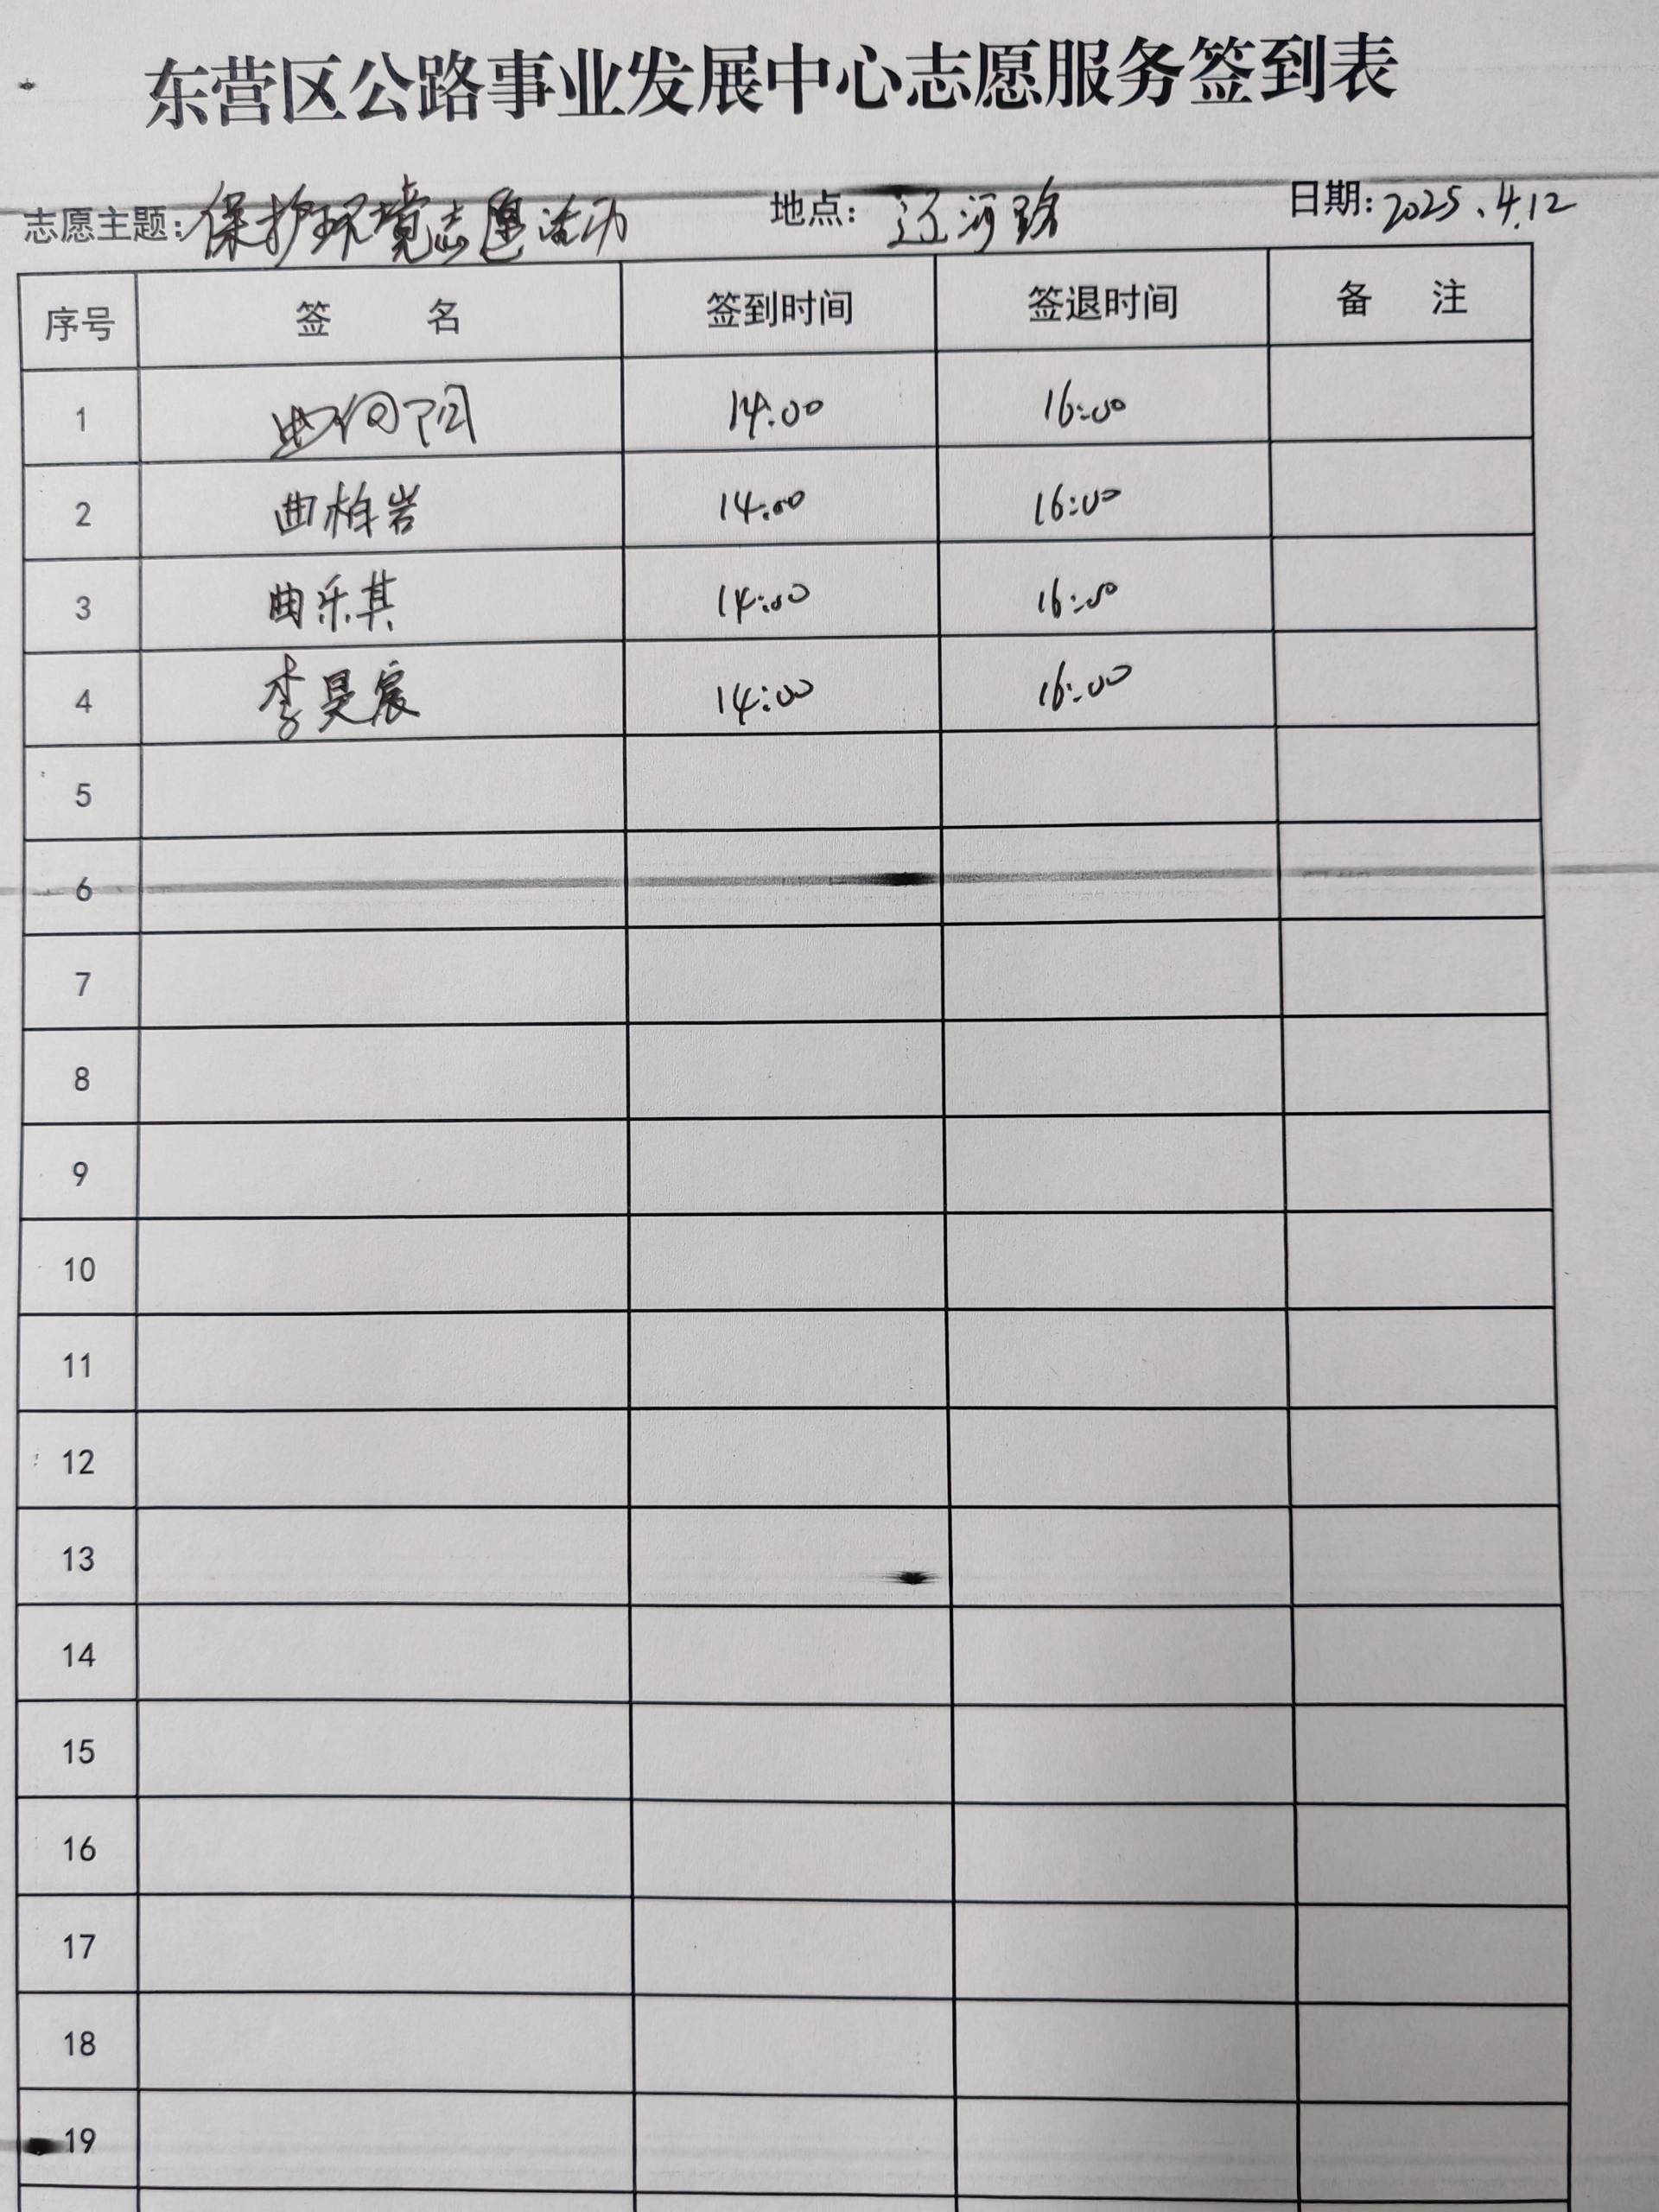 东营区公路事业发展中心志愿服务签到表
志愿主题：保护环境志愿活动 地点：辽河路 日期：2025.4.12
序号 签 名 签到时间 签退时间 备 注
1 曲向阳 14:00 16:00
2 曲柏岩 14:00 16:00
3 曲乐其 14:00 16:00
4 李昊宸 14:00 16:00
5
6
7
8
9
10
11
12
13
14
15
16
17
18
19